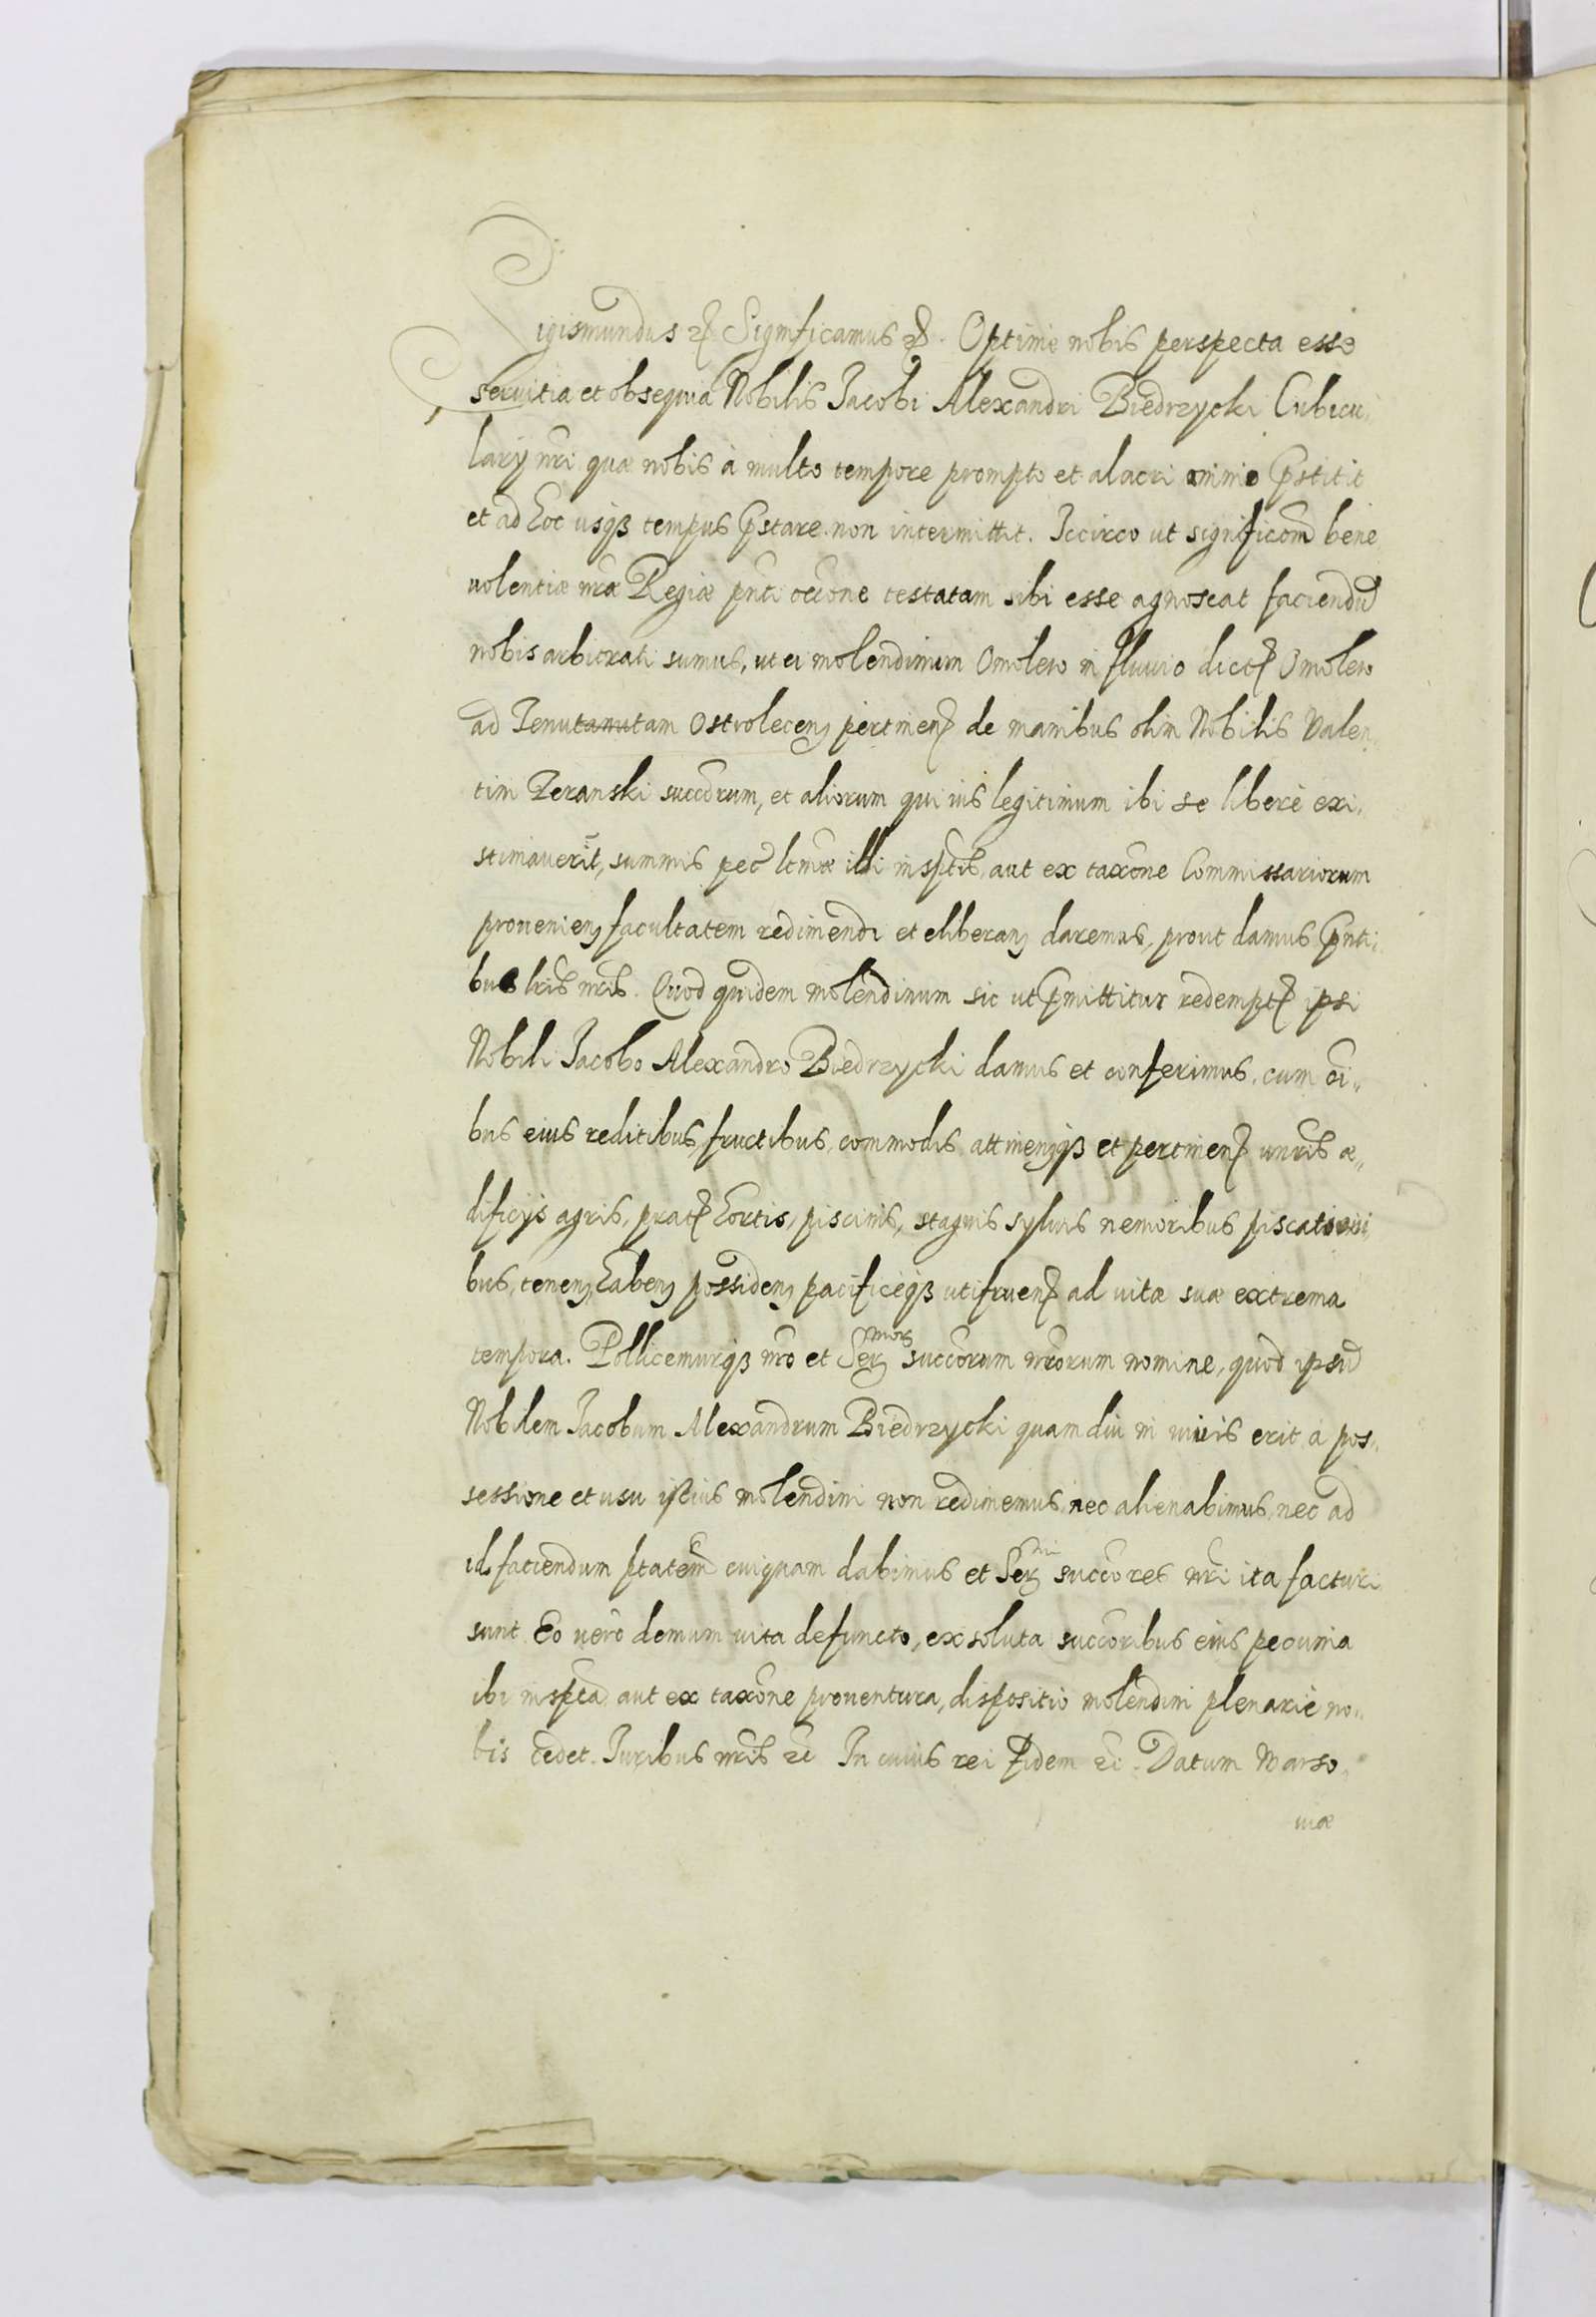 Sigismundus etc Significamus etc. Optime nobis perspecta esse
servitia et obsequia Nobilis Jacobi Alexandri Biedrzycki Cubicu,
lary nri quæ nobis à multo tempore prompto et alacri animo pstitit
et ad hoc usqȝ tempus pstare non intermittit. Iccirco ut significom bene
uolentiæ nræ Regiæ pnti occone testatam sibi esse agnoscat faciendũ
nobis arbitrati sumus, ut ei molendinum Omolew in fluuio dict Omolew
ad Tenutanutam Ostrolecen pertinen de manibus olim Nobilis Valen,
tini Zeranski succorum, et aliorum qui ius legitimum ibi se libere exi,
stimauerit, summis pec ltme illi insptis, aut ex taxone Commissariorum
prouenien facultatem redimendi et eliberan daremus, prout damus pnti,
bus lris nris. Quod quidem molendinum sic ut pmittitur redempt ipsi
Nobili Jacobo Alexandro Biedrzycki damus et conferimus, cum oi,,
bus eius reditibus, fructibus, commodis attinenqȝ et pertinen unris æ,,
dificijs agris, prat hortis, piscinis, stagnis syluis nemoribus piscationi,
bus, tenen haben possiden pacificeqȝ utifruen ad uitæ suæ extrema
tempora. Pollicemurqȝ nro et Ser mor succorum nrorum nomine, quod ipsũ
Nobilem Jacobum Alexandrum Biedrzycki quam diu in uiuis erit à pos,,
sessione et usu istius molendini non redimemus nec alienabimus, nec ad
id faciendum ptatem cuiquam dabimus et Ser mi succores nri ita facturi
sunt Eo uero demum uita defuncto, exsoluta succoribus eius pecunia
ibi inspta aut ex taxone prouentura, dispositio molendini plenarie no,,
bis cedet. Juribus nris etc In cuius rei fidem etc. Datum Warso,
uiæ